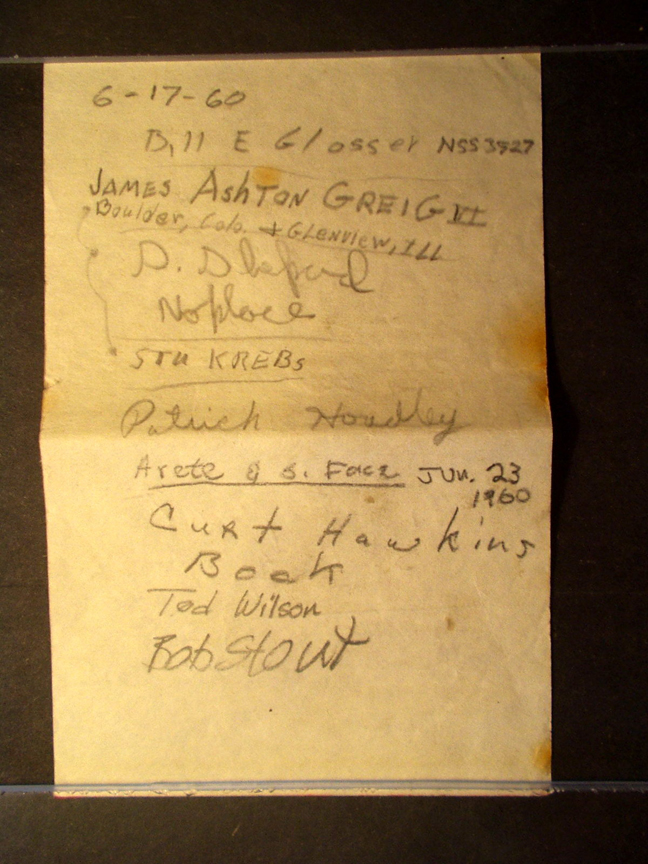 6-17-60
Bill E Glosser NSS 3527
JAMES ASHTON GREIG VI
Boulder, Colo. + GLENVIEW, ILL
D.
Noplace
STU KREBS
Patrick Hoadley
Arete & S. Face JUN. 23
1960
Curt Hawkins
Ted Wilson
Bob Stout